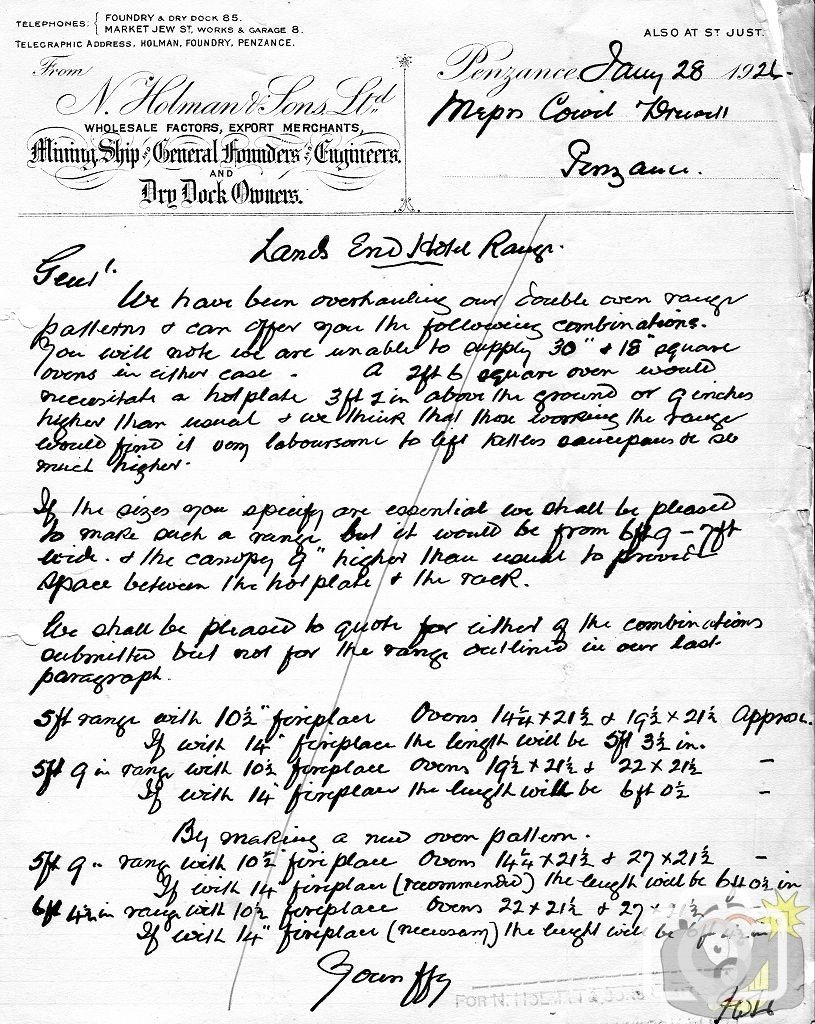 TELEPHONES: { FOUNDRY & DRY DOCK 85.
MARKET JEW ST, WORKS & GARAGE 8.
TELEGRAPHIC ADDRESS, HOLMAN, FOUNDRY, PENZANCE.
ALSO AT ST JUST.
From
N. Holman & Sons, Ltd
WHOLESALE FACTORS, EXPORT MERCHANTS,
Mining, Ship and General Founders and Engineers,
AND
Dry Dock Owners.
Penzance, Jany 28 192
Messrs Cowell Drewitt
Penzance.
Lands End Hotel Range.
Gents.
We have been overhauling our double oven range
patterns & can offer you the following combinations.
You will note we are unable to supply 30" & 18" square
ovens in either case. A 2ft 6 square oven would
necessitate a hotplate 3ft 2 in above the ground or 9 inches
higher than usual & we think that those working the range
would find it very laboursome to lift kettles saucepans & so
much higher.
If the sizes you specify are essential we shall be pleased
to make such a range but it would be from 6ft 9 - 7ft
wide & the canopy 9" higher than usual to provide
space between the hotplate & the rack.
We shall be pleased to quote for either of the combinations
submitted but not for the range outlined in our last
paragraph.
5ft range with 10½" fireplace Ovens 14¼ x 21½ & 19½ x 21½ Approx.
If with 14" fireplace the length will be 5ft 3½ in.
5ft 9 in range with 10½ fireplace ovens 19½ x 21½ & 22 x 21½ -
If with 14" fireplace the length will be 6ft 0½ -
By making a new oven pattern.
5ft 9" range with 10½" fireplace Ovens 14¼ x 21½ & 27 x 21½ -
If with 14" fireplace (recommended) the length will be 6ft 0½ in
6ft 4½ in range with 10½ fireplace Ovens 22 x 21½ & 27 x 21½
If with 14" fireplace (necessary) the length will be 6ft in
Yours ffy
FOR N. HOLMAN & SONS